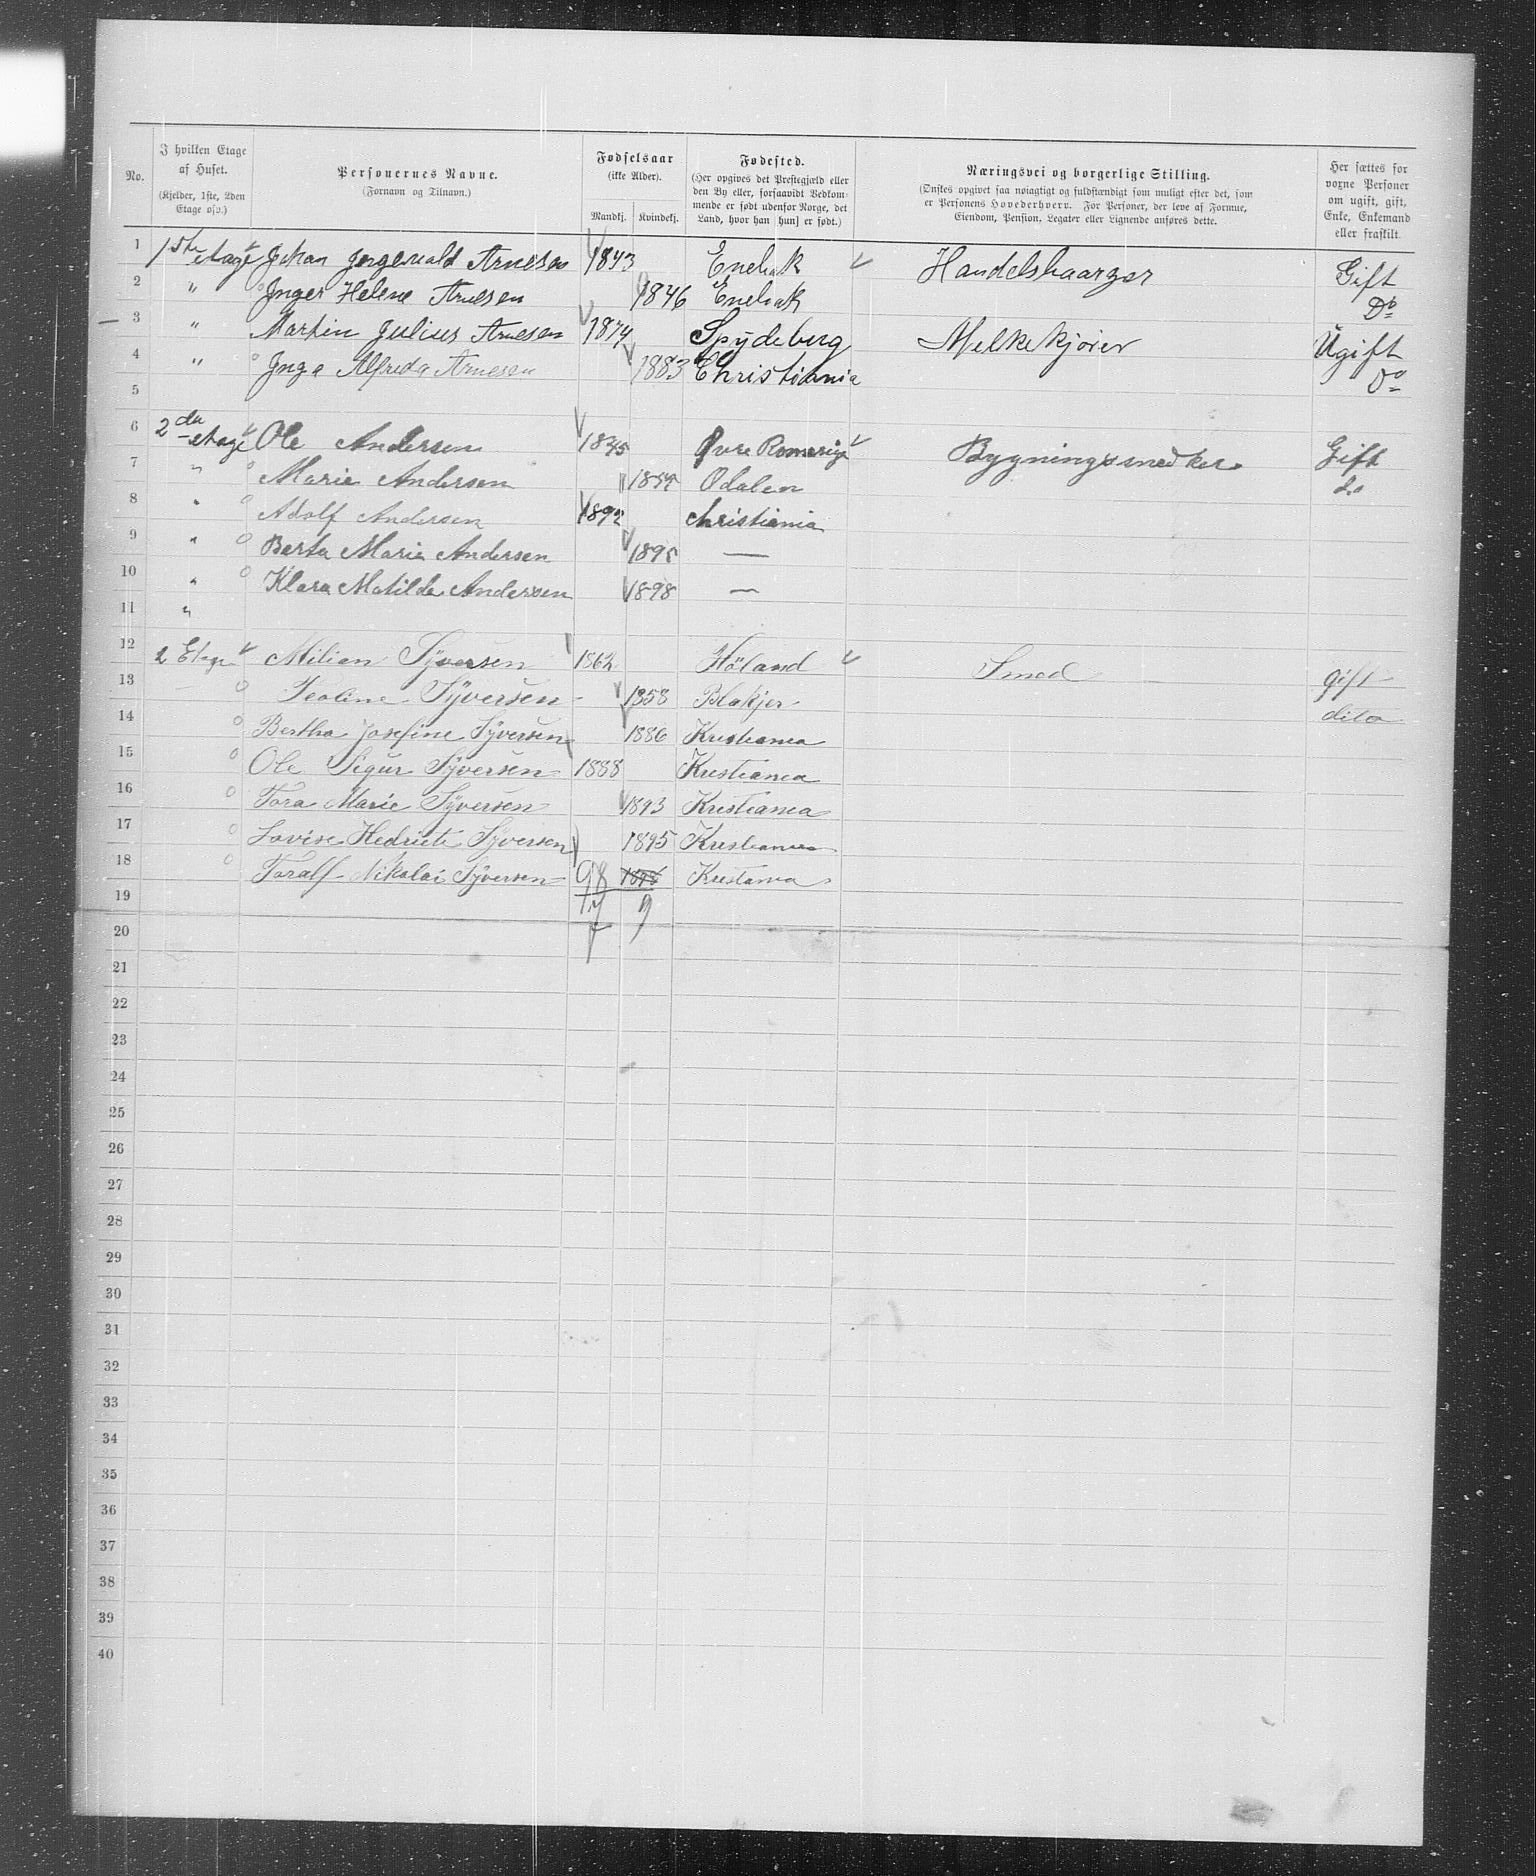 No. | I hvilken Etage af Huset. (Kjelder, 1ste, 2den Etage osv.) | Personernes Navne. (Fornavn og Tilnavn.) | Fødselsaar (ikke Alder). Mandkj. | Kvindekj. | Fødested. (Her opgives det Prestegjæld eller den By eller, forsaavidt Vedkommende er født udenfor Norge, det Land, hvor han [hun] er født.) | Næringsvei og borgerlige Stilling. (Ønskes opgivet saa nøiagtigt og fuldstændigt som muligt efter det, som er Personens Hovederhverv. For Personer, der leve af Formue, Eiendom, Pension, Legater eller Lignende anføres dette. | Her sættes for voxne Personer om ugift, gift, Enke, Enkemand eller fraskilt.
1 1ste etage Johan Jngevald Arnesen 1843 Enebak Handelsbaarger Gift
2 " Jnger Helene Arnesen 1846 Enebak Do
3 " Martin Julius Arnesen 1874 Spydeberg Melkekjører Ugift
4 " Jnga Alfreda Arnesen 1883 Christiania Do
5
6 2den etage Ole Andersen 1845 Øvre Romerige Bygningssnedker Gift
7 " Marie Andersen Odalen do
8 " Adolf Andersen 1892 Christiania
9 " Berta Marie Andersen 1895 —
10 " Klara Matilde Andersen 1898 —
11 "
12 2 Etage Milian Syversen Höland Smed gift
13 Teoline Syversen 1858 Blakjer dito
14 Bertha Josefine Syversen 1886 Kristiania
15 Ole Sigur Syversen 1888 Kristiania
16 Tora Marie Syversen 1893 Kristiania
17 Lovise Hedriete Syversen 1895 Kristiania
18 Toralf Nikolai Syversen 98 1898 Kristania
19 7 9
20
21
22
23
24
25
26
27
28
29
30
31
32
33
34
35
36
37
38
39
40